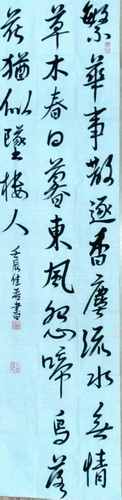 繁華事散逐香塵流水無情
草木春日暮東風怨啼鳥落
花猶似墜樓人
壬辰 書